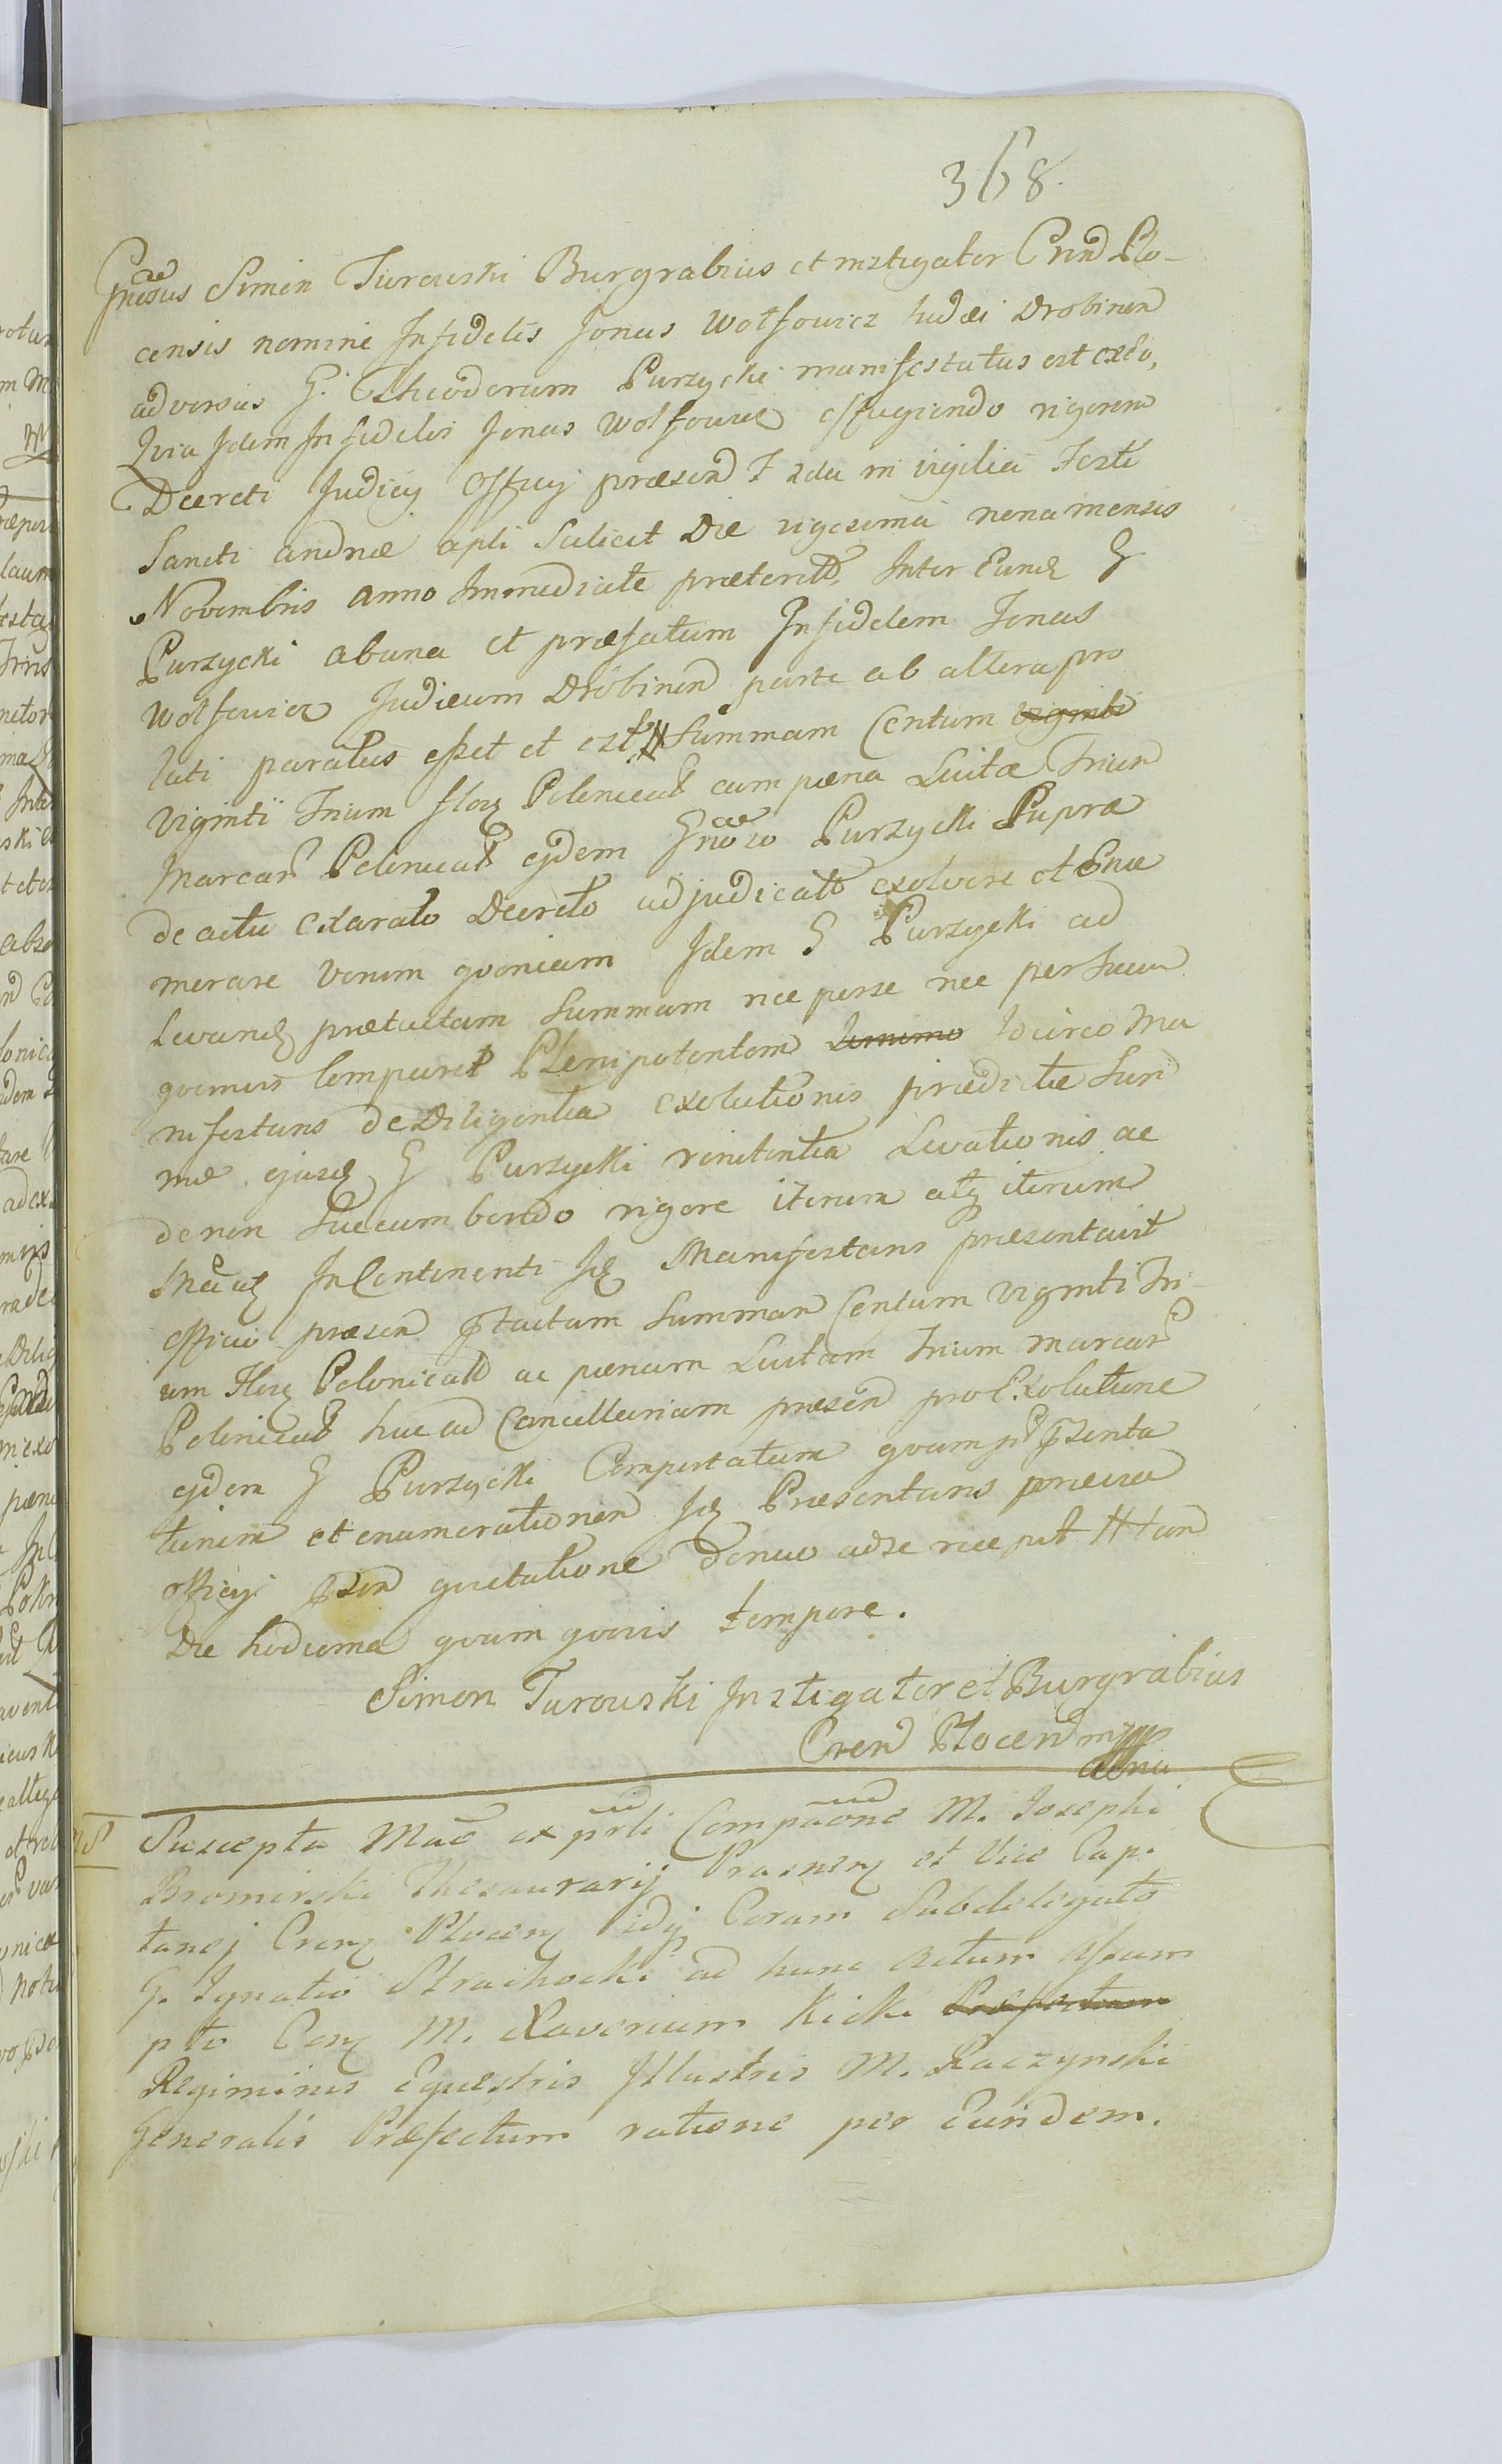 368.
Gnosus Simon Turowski Burgrabius et instigator Crend Plo-
censis nomine Infidelis Jonas Wolfowicz Iudæi Drobinen
adversus G. Theodorum Purzycki manifestatus est exEo,
Quia Idem Infidelis Jonas Wolfowicz effugiendo rigorem
Decreti Judicy Officy præsend F 2da in vigilia Festi
Sancti andreæ apli Scilicet Die vigesima nona mensis
Novembris anno Immediate præterito, Inter Eund G
Purzycki abuna et præfatum Infidelem Jonas
Wolfowicz Judæum Drobinen parte ab altera pro
lati paratus esset et est Summam Centum viginti
viginti Trium flor Polonical cum pæna Luita Trium
Marcar Polonical ejdem Gnoso Purzycki Supra
de actu exarato Decreto adjudicato exolvere et Enu
merare verum quoniam Idem G Purzycki ad
Levand prætactam Summam nec perse nec per Suum
quemvis comparet Plenipotentem Idcirco Ma
nifestans de Diligentia exolutionis prædictæ Sum
mæ ejusd G Purzycki renitentia Levationis ac
denon Succumbendo rigore iterum atq iterum
InContinenti Id Manifestans præsentavit
officio præsen ptactam Summam Centum viginti Tri-
um Flor Polonicall ac pænam Luitam Trium marcar
Polonical huc ad Cancellariam præsen pro Exolutione
ejdem G Purzycki Comportatam quam pt psenta
tionem et enumerationem Id Præsentans prævia
officy psen quietatione denuo adse recepit
Die hodierna quam quovis tempore.
Simon Turowski Instigator et Burgrabius
Cren Plocen
Suscepta ex prli Compaone M. Josephi
Bromirski Thesaurarij Prasnen et Vice Cap.
tanej Cren Plocen idq Coram Subdelegato
G. Ignatio Strachocki ad hunc Actum Assum
pto Con M. Xaverium Kicki Præfectum
Regiminis Equestris Illustris M. Raczynski
Generalis Præfectum ratione per Eundem.